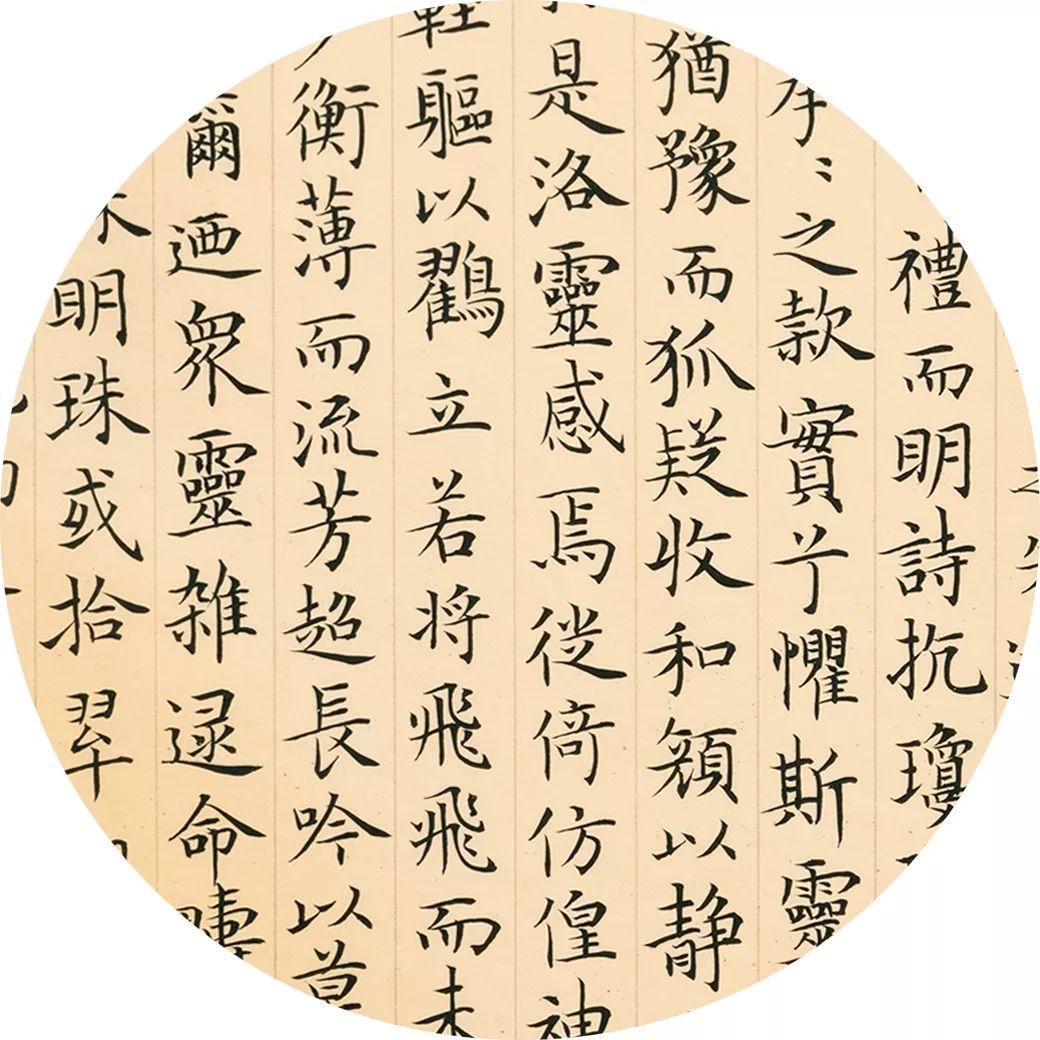 禮而明詩抗瓊
之款實兮懼斯靈
猶豫而狐疑收和顏以静
是洛靈感焉徙倚仿偟神
軽軀以鸖立若将飛飛而未
衡薄而流芳超長吟以慕
爾迺衆靈雑逯命疇
明珠或拾翠